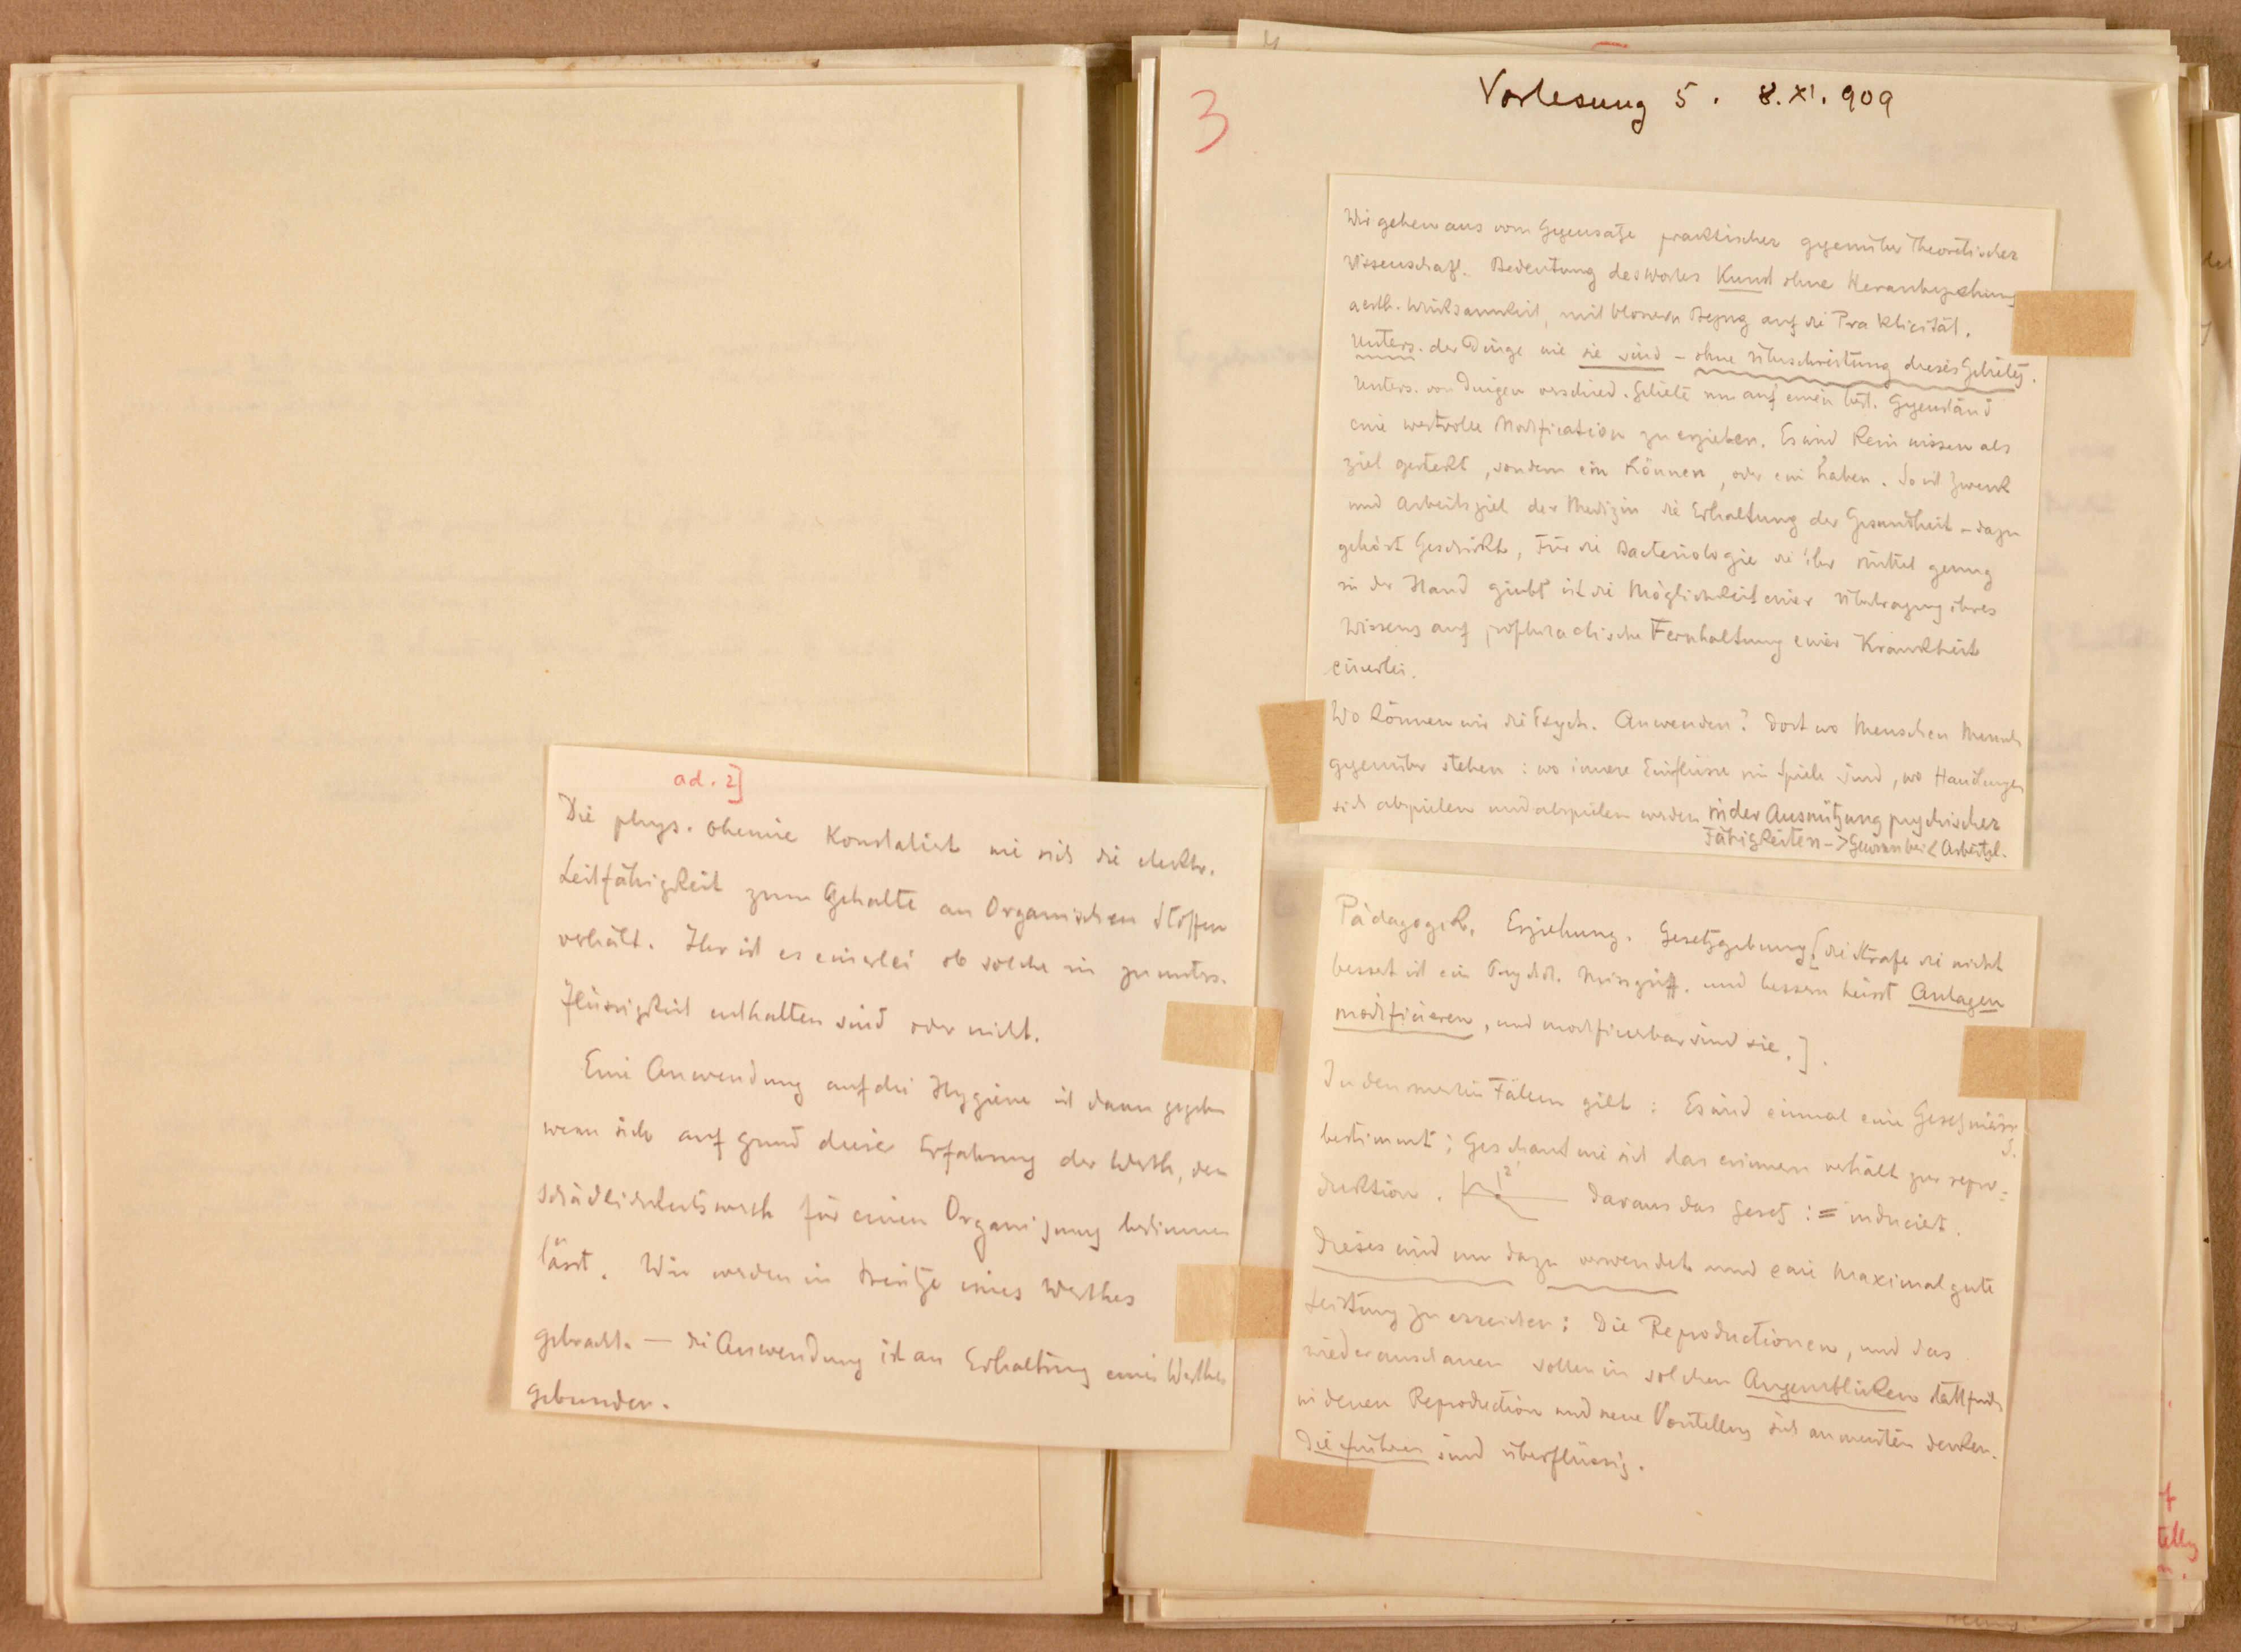 3
Vorlesung 5. 8.XI.909
Wir gehen aus vom Gegensatze praktischer gegenüber Theoretischer
Wissenschaft. Bedeutung des Wortes Kunst ohne Heranbeziehung
aesth. Wirksamkeit, mit blossem Bezug auf die Prakticität.
Unters. der Dinge wie sie sind – ohne Überschreitung dieses Gebietes.
Unters. von Dingen verschied. Gebiete um auf einen best. Gegenstand
eine wertvolle Modification zu erzielen. Es wird kein wissen als
ziel gesteckt, sondern ein Können, oder ein haben. So ist Zweck
und Arbeitsziel der Medizin die Erhaltung der Gesundheit – dazu
gehört Geschickt. Für die Bacteriologie die ihr Mittel genug
in der Hand giebt ist die Möglichkeit einer Übertragung ihres
Wissens auf Fernhaltung einer Krankheit
einerlei.
Wo können wir die Psych. Anwenden? Dort wo Menschen Mensch
gegenüber stehen: wo innere Einflüsse im Spiele sind, wo Handlungen
sich abspielen und abspielen werden in der Ausnützung psychischer
Fähigkeiten –> Gewinn bei < Arbeitsl.
ad. 2]
Die phys. chemie Konstatiert wie sich die elektr.
Leitfähigkeit zum Gehalte an Organischen Stoffen
verhält. Ihr ist es einerlei ob solche in zu unters.
Flüssigkeit enthalten sind oder nicht.
Eine Anwendung auf die Hygiene ist dann gegeben
wenn sich auf grund dieser Erfahrung der Werth, den
Schädlichkeitswerth für einen Organismus bestimmen
lässt. Wir werden in Besitze eines Werthes
gebracht. — die Anwendung ist an Erhaltung eines Werthes
gebunden.
Pädagogik, Erziehung. Gesetzgebung [die Strafe die nicht
bessert ist ein Psychol. Missgriff. und bessern heisst Anlagen
modificieren, und modificierbar sind sie.].
In den meisten Fällen gilt: Es wird einmal eine Gesetzmässigk.
bestimmt; Geschaut wie sich das erinnern verhält zur repro=
duktion. 2 Daraus das Gesetz := induciert.
Dieses wird nun dazu verwendet und eine maximal gute
Leistung zu erreichen: Die Reproductionen, und das
wiederanschauen sollen in solchen Augenblicken stattfinden
in denen Reproduction und neue Vorstellung sich am meisten decken.
Die frühern sind überflüssig.